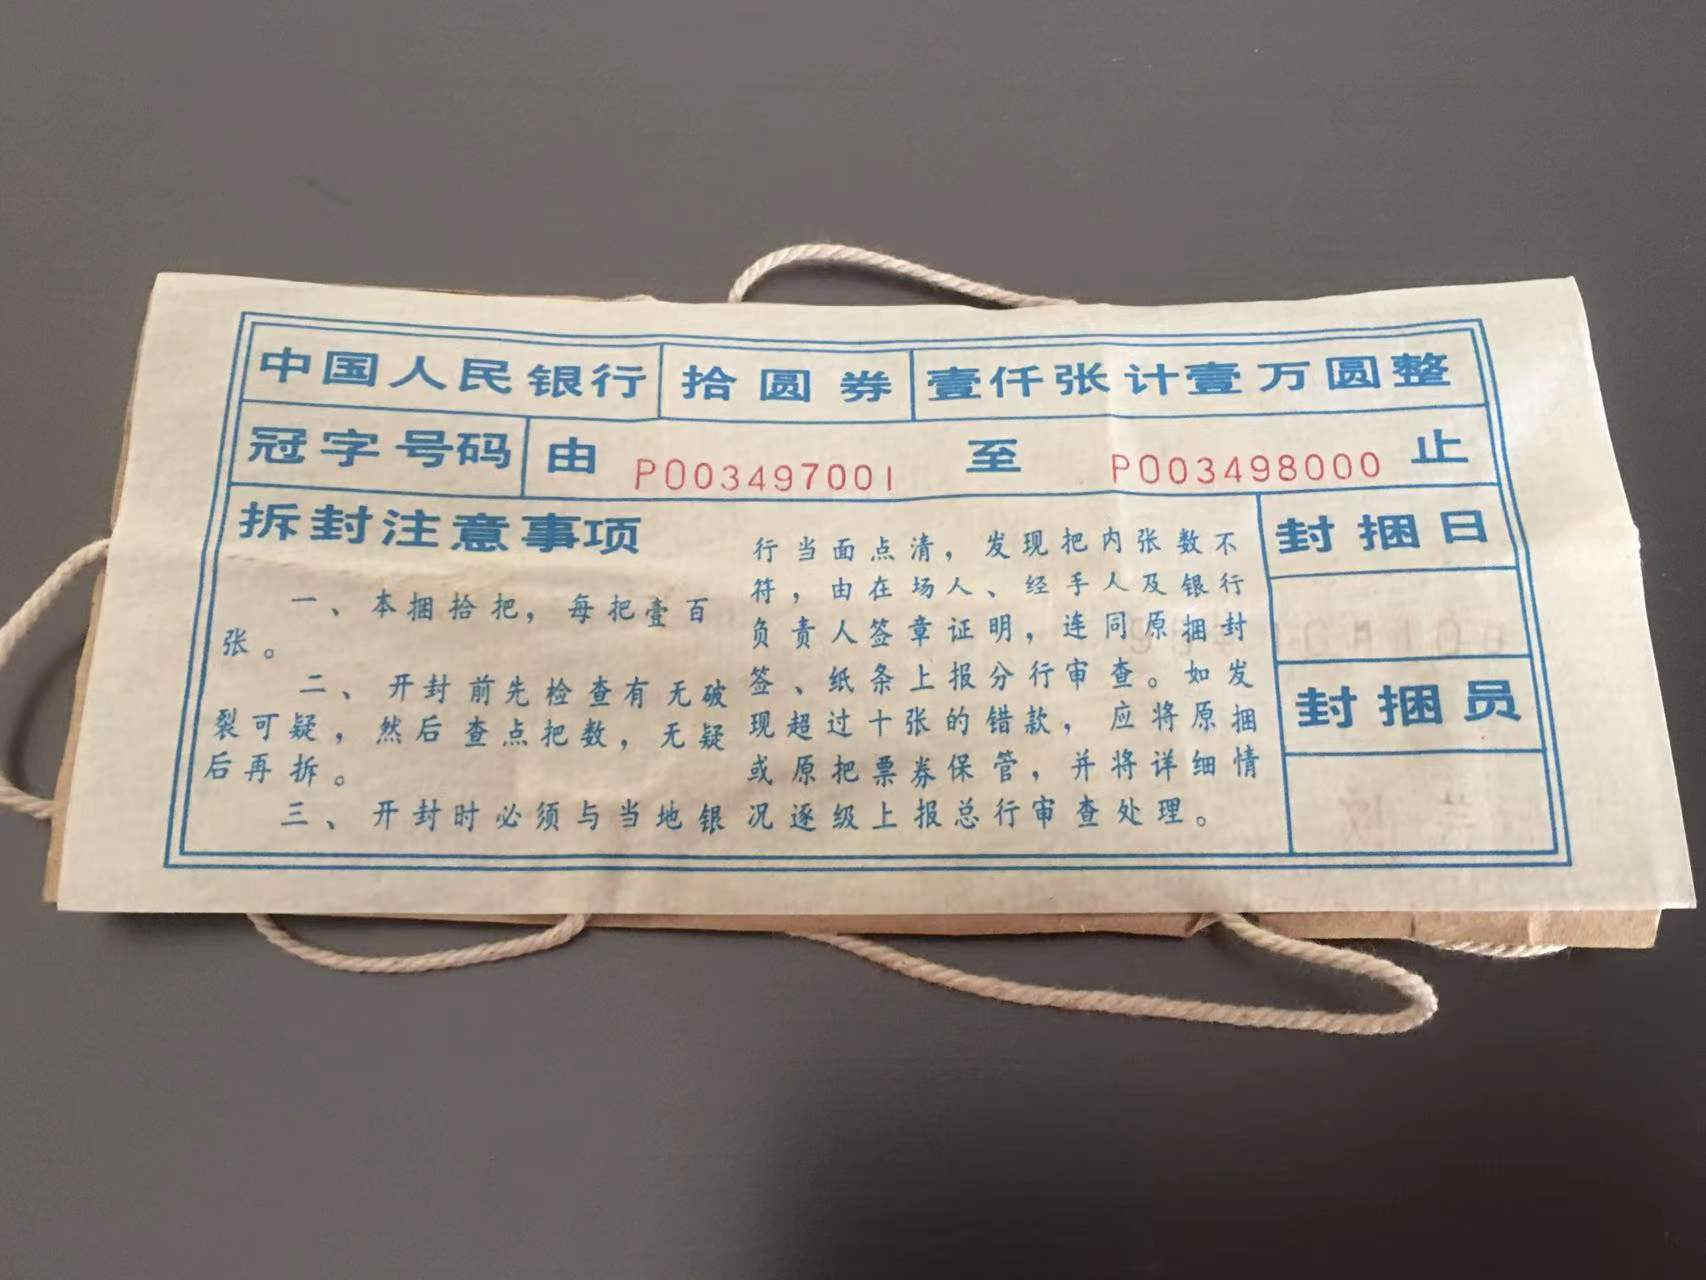 中国人民银行 拾圆券 壹仟张计壹万圆整
冠字号码 由 P003497001 至 P003498000 止
拆封注意事项
一、本捆拾把，每把壹百
张。
二、开封前先检查有无破
裂可疑，然后查点把数，无疑
后再拆。
三、开封时必须与当地银
行当面点清，发现把内张数不
符，由在场人、经手人及银行
负责人签章证明，连同原捆封
签、纸条上报分行审查。如发
现超过十张的错款，应将原捆
或原把票券保管，并将详细情
况逐级上报总行审查处理。
封捆日
封捆员